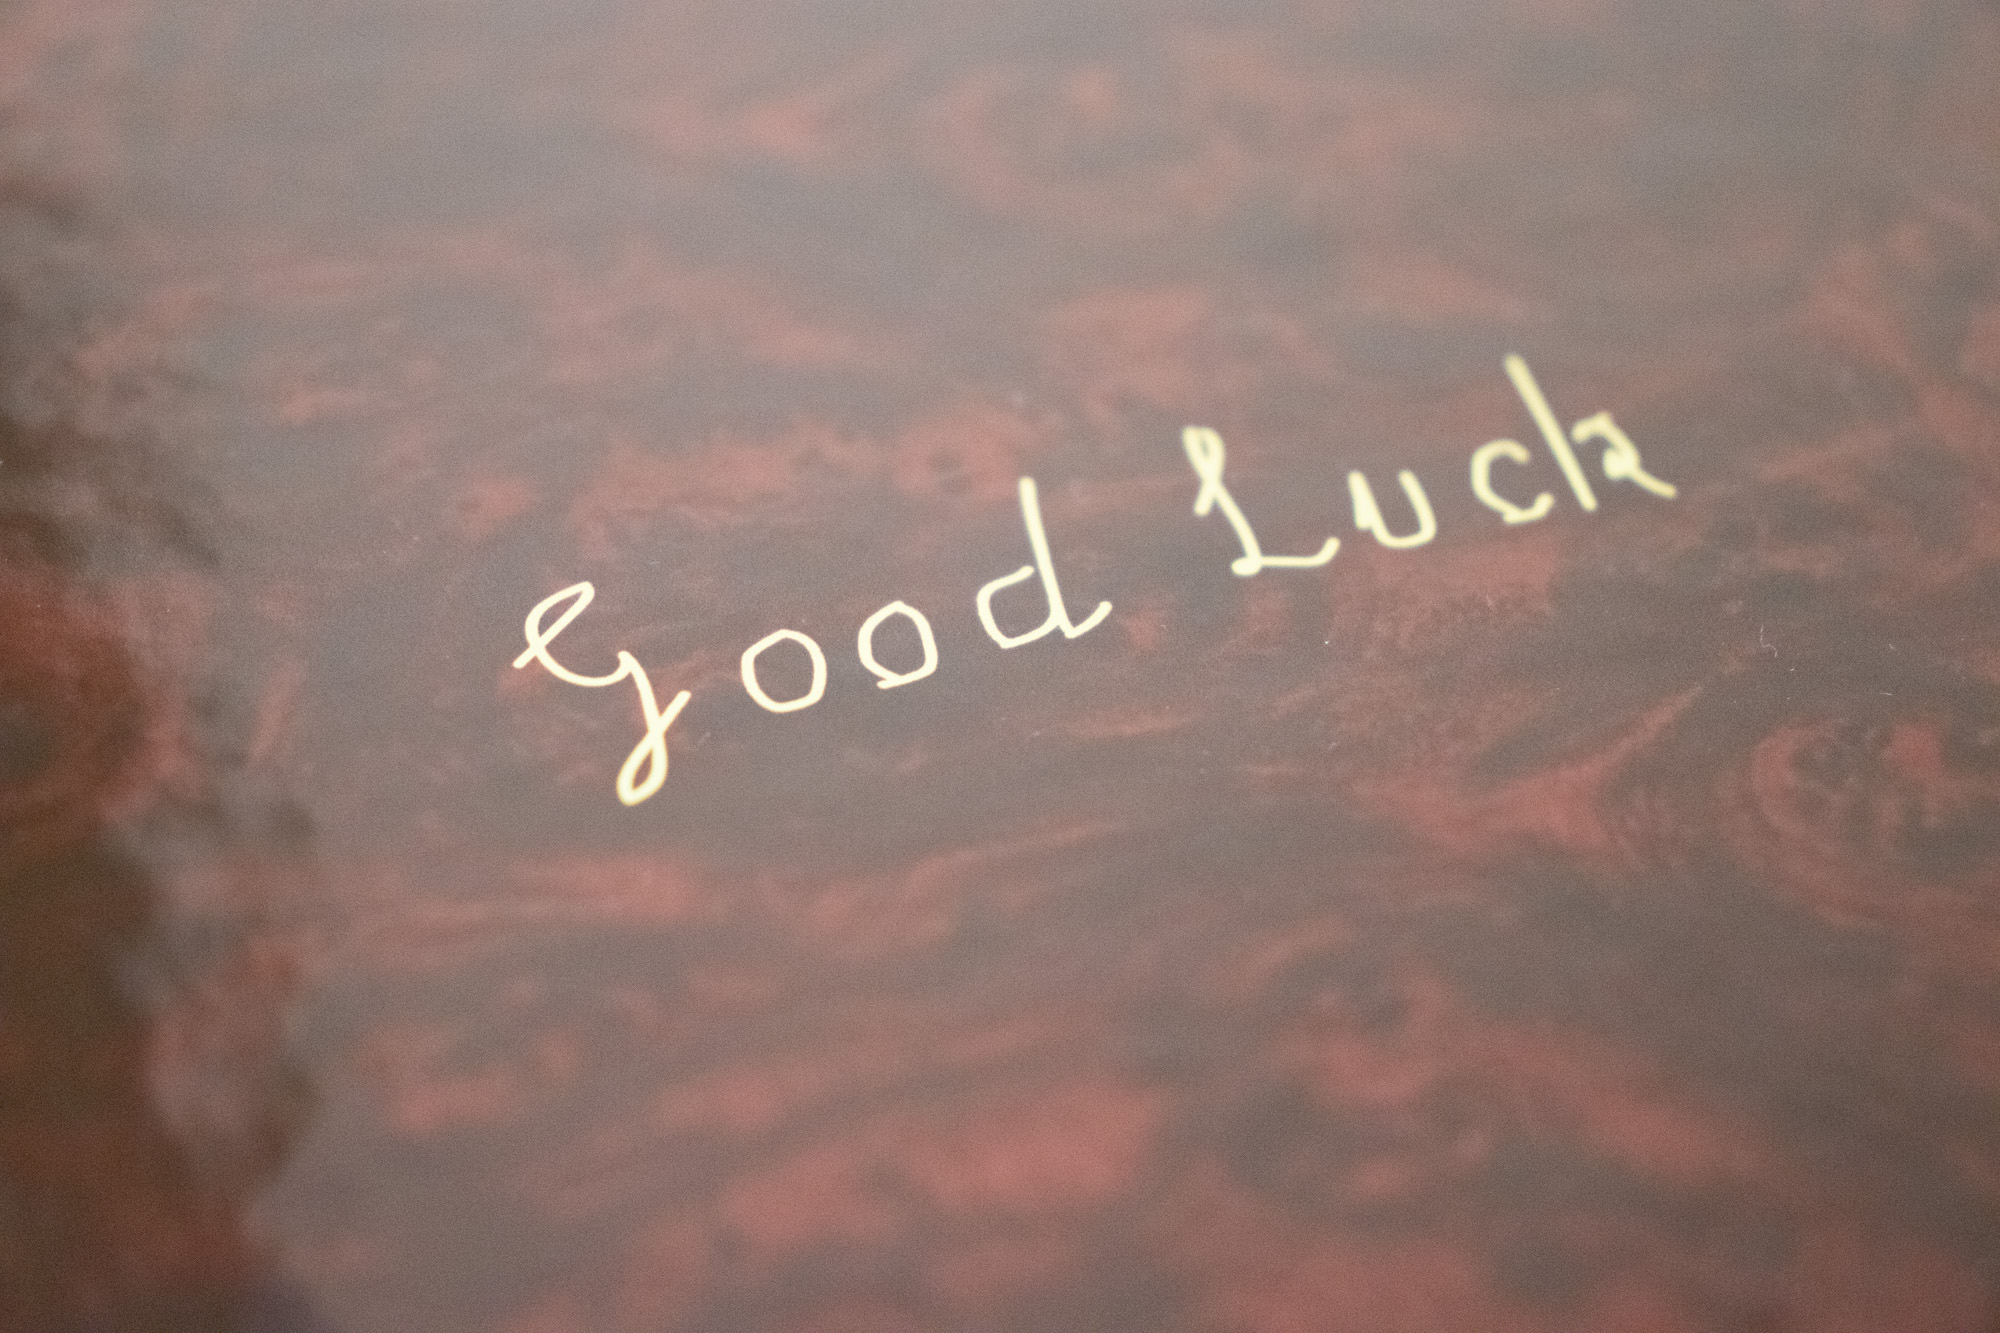 Good Luck